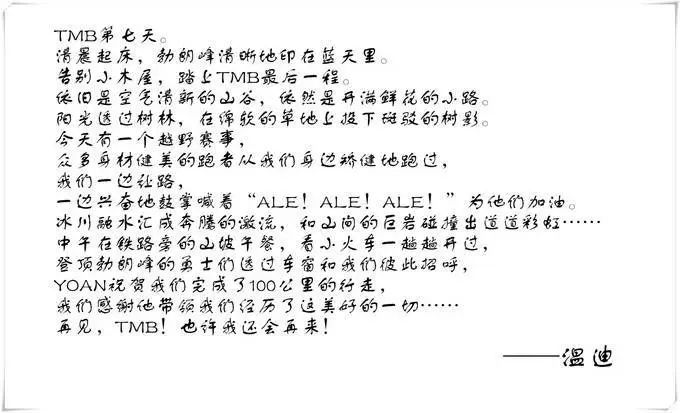 TMB第七天。
清晨起床，勃朗峰清晰地印在蓝天里。
告别小木屋，踏上TMB最后一程。
依旧是空气清新的山谷，依然是开满鲜花的小路。
阳光透过树林，在绵软的草地上投下斑驳的树影。
今天有一个越野赛事，
众多身材健美的跑者从我们身边矫健地跑过，
我们一边让路，
一边兴奋地鼓掌喊着“ALE！ALE！ALE！”为他们加油。
冰川融水汇成奔腾的激流，和山间的巨岩碰撞出道道彩虹……
中午在铁路旁的山坡午餐，看小火车一趟趟开过，
登顶勃朗峰的勇士们透过车窗和我们彼此招呼，
YOAN祝贺我们完成了100公里的行走，
我们感谢他带领我们经历了这美好的一切……
再见，TMB！也许我还会再来！
——温迪